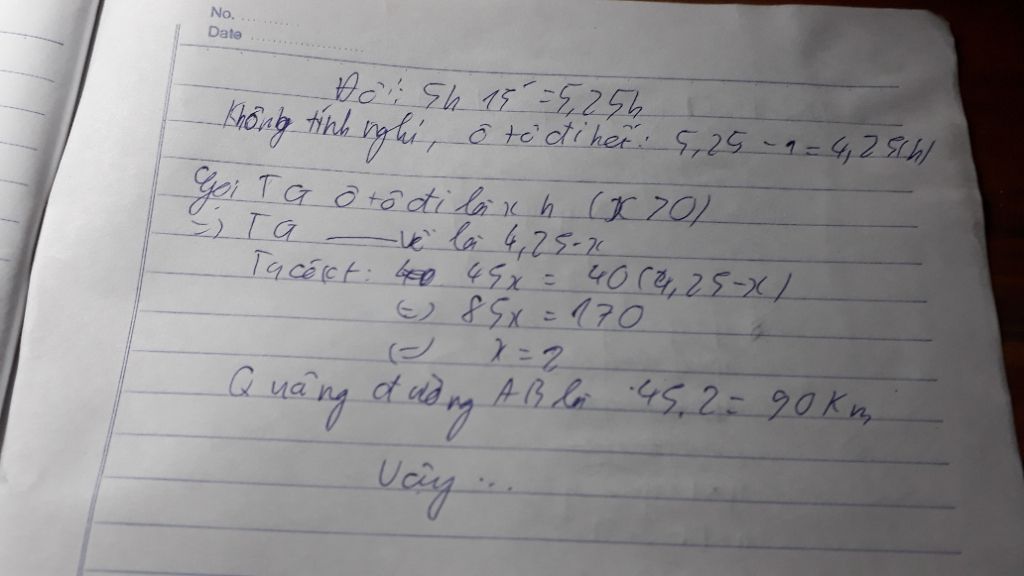 No. ............
Date ........................
Đổi: 5h 15' = 5,25h
Không tính nghỉ, ô tô đi hết: 5,25 - 1 = 4,25(h)
Gọi TG ô tô đi là x h (x > 0)
=> TG —— về là 4,25-x
Ta có pt: 45x = 40(4,25-x)
(=) 85x = 170
(=) x = 2
Quãng đường AB là 45.2 = 90 Km
Vậy ...